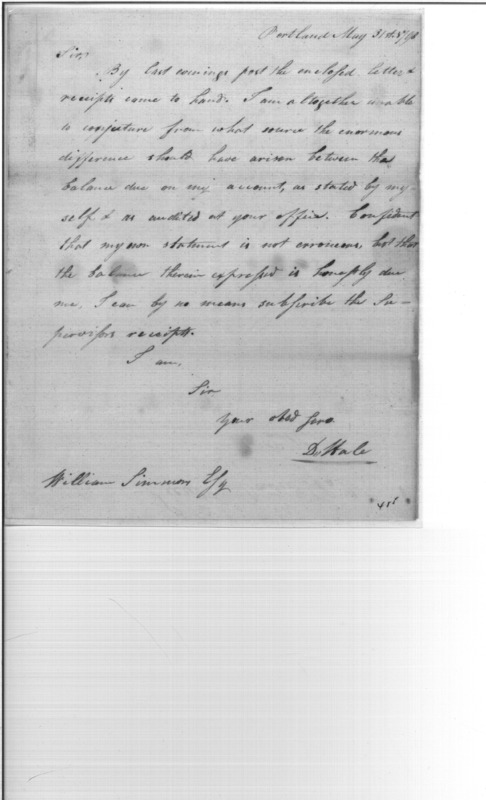 Portland May 31st 1798
Sir
By last evenings post the enclosed letter &
receipts came to hand. I am altogether unable
to conjecture from what source the enormous
difference should have arisen between the
balance due on my account, as stated by my-
self & as audited at your office. Confident
that my own statement is not erroneous, but that
the balance therein expressed is honestly due
me, I can by no means subscribe the Su-
pervisors receipts.
I am,
Sir
your obed Serv
D. Hale
William Simmons Esq